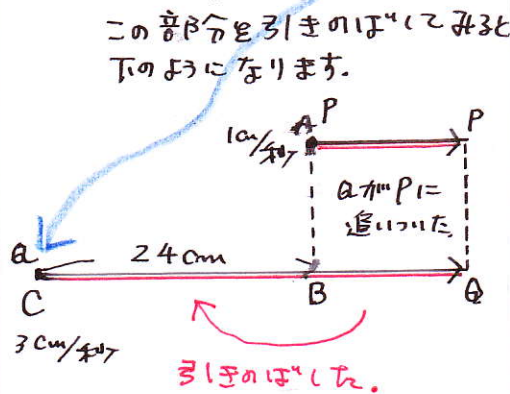 この部分を引きのばしてみると
下のようになります。
A P P
1cm/秒
QがPに
追いついた
Q 24cm
C B Q
3cm/秒
引きのばした。